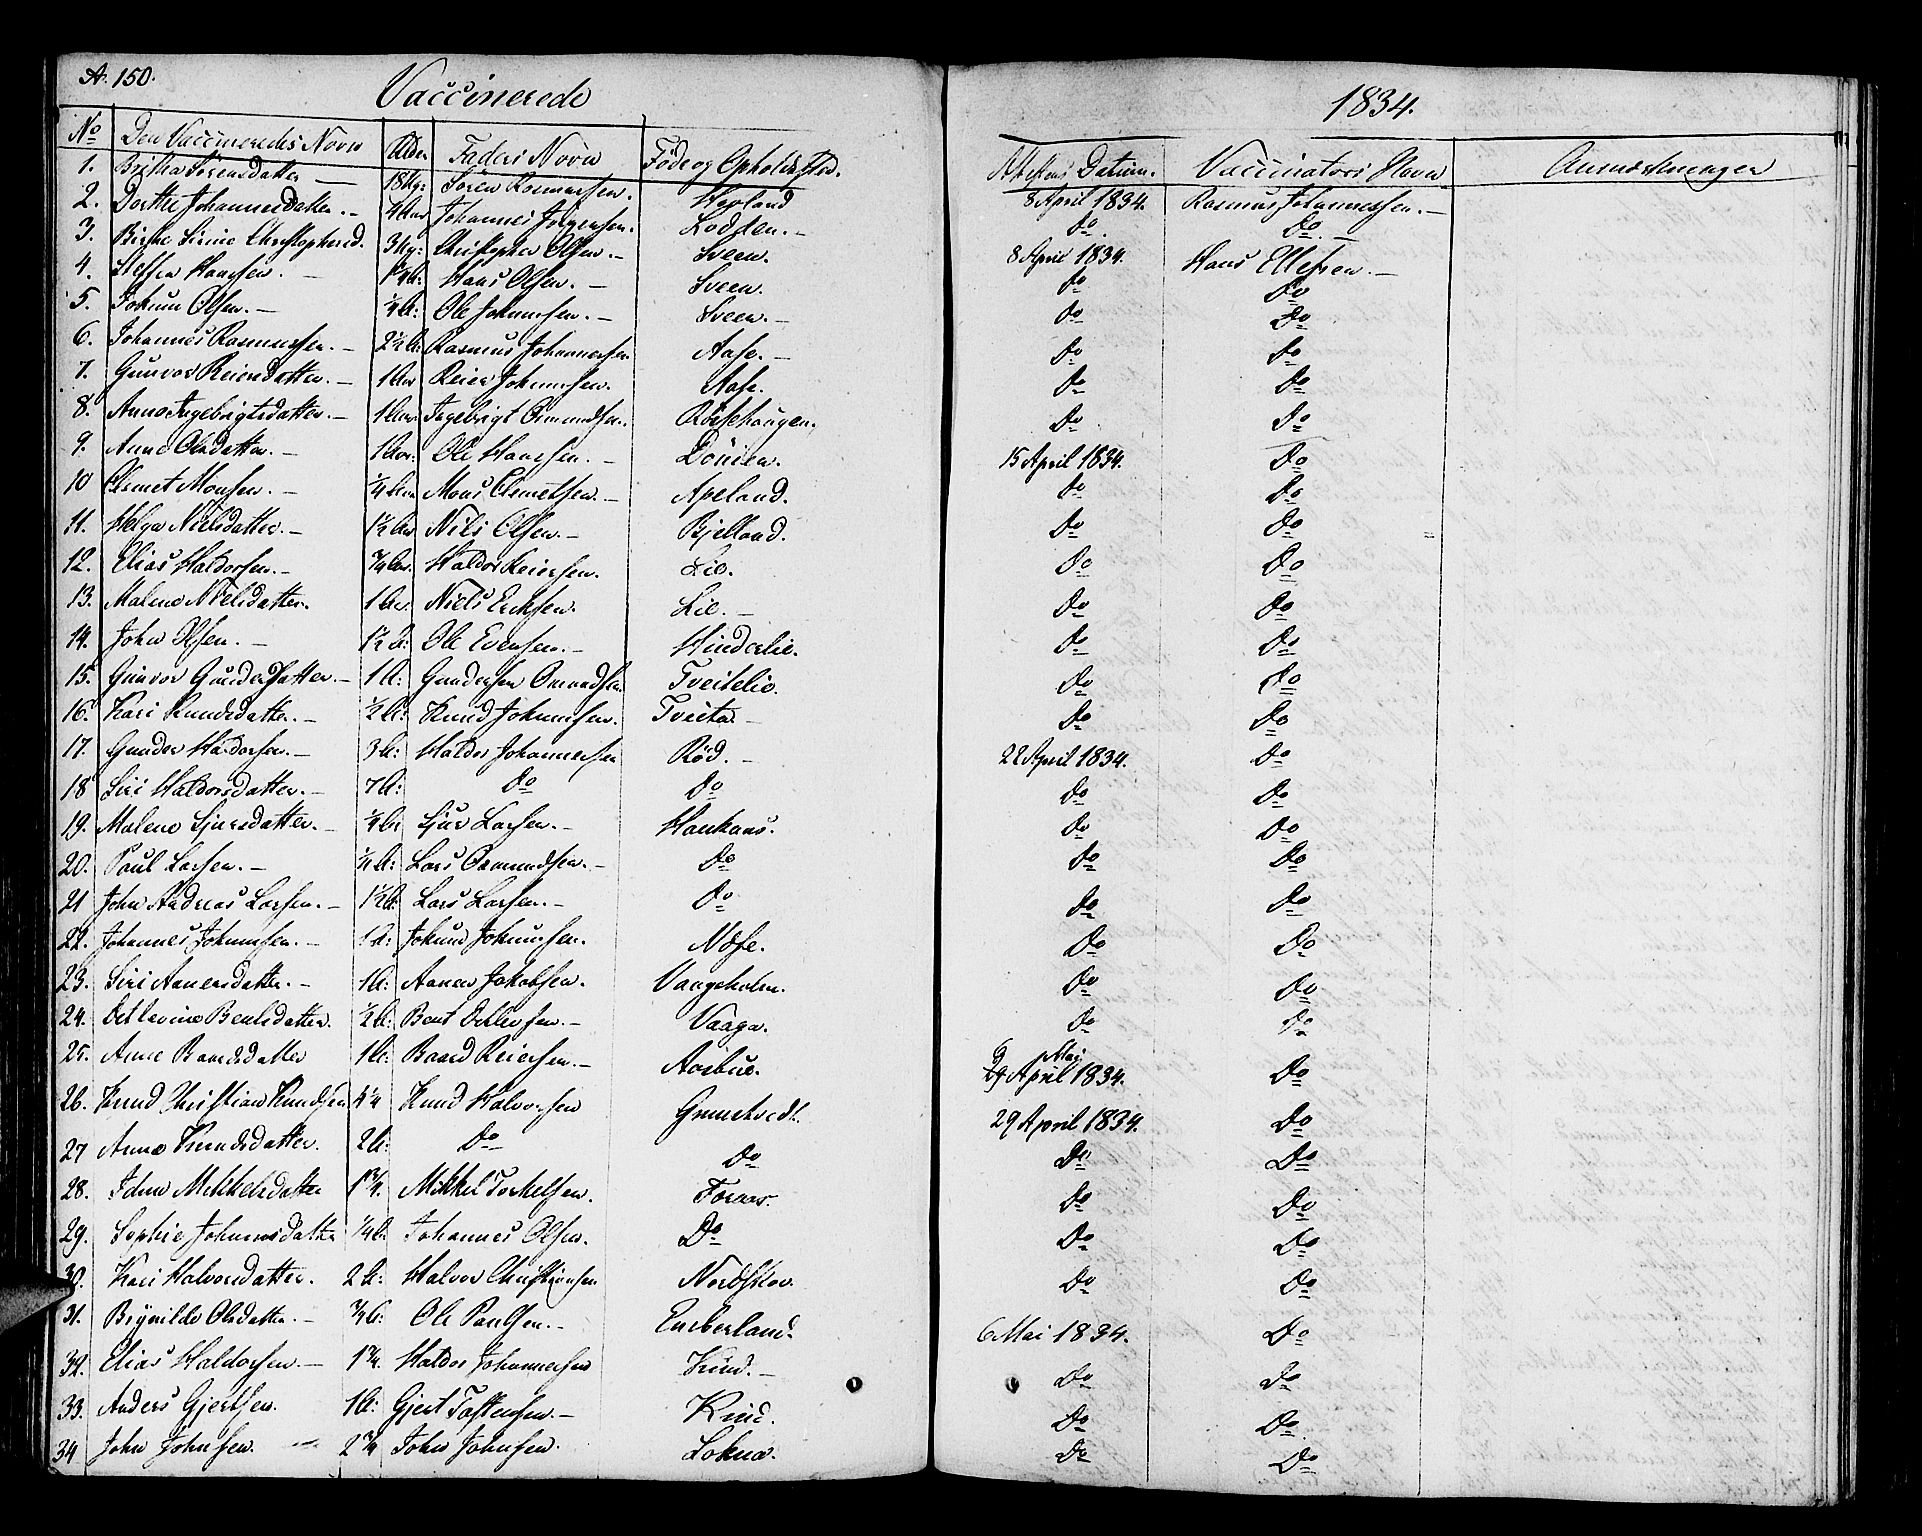 A. 150. Vaccinerede 1834.
No Den Vaccineredes Navn Alder Faders Navn Føde og Opholdssted. Attestens Datum. Vaccinators Navn Anmærkninger
1. Birtha Sörensdatter 18 Sören Rasmussen. 8 April 1834. Rasmus Johannessen.
2. Dorthe Johannesdatter. Johannes Jörgensen. Lodden. Do Do
3. Birthe Sirine Christophersd. 3 Christopher Olsen. Sveen. 8 April 1834. Hans Ellefsen.
4. Steffen Hansen. Hans Olsen. Sveen. Do Do
5. Jokum Olsen. 1/4 A: Ole Jokumsen. Sveen. Do Do
6. Johannes Rasmussen. 2 1/2 A: Rasmus Johannessen Aase. Do Do
7. Gunvor Reiersdatter. 1 Aar Reier Johannsen. Aase. Do Do
8. Anna Ingebrigtsdatter. 1 Aar Ingebrigt Omundsen. Do Do
9. Anne Olsdatter. 1 Aar. Ole Hansen. 15 April 1834. Do
10 Clemet Monsen. 1/4 Aar Mons Clemetsen. Apeland. Do Do
11. Helga Nielsdatter. 1 1/2 Aar Nils Olsen. Bjelland. Do Do
12. Elias Haldorsen. 3/4 Aar. Haldor Reiersen. Lie. Do Do
13. Malene Nielsdatter. 1 Aar. Niels Ericksen. Lie. Do Do
14. John Olsen. 1 1/2 A: Ole Evensen. Hinderlie. Do Do
15. Gunvor Gundersdatter. 1 A: Gundersen Omundsen Tveitelie. Do Do
16. Kari Knudsdatter. 1/2 A: Knud Jokumsen. Tveita Do Do
17. Gunder Haldorsen. 3 A: Haldor Johannessen Röd. 22 April 1834. Do
18 Siri Haldorsdatter. 7 A: Do Do Do Do
19. Malene Sjursdatter. 1/4 A: Sjur Larsen. Haukaas. Do Do
20. Paul Larsen. 1/4 A: Lars Ommundsen. Do Do Do
21 John Andreas Larsen. 1 1/2 A: Lars Larsen. Do Do Do
22. Johannes Jokumsen. 1 A: Jokum Jokumsen. Næse. Do Do
23. Siri Aanensdatter. 1 A: Aanen Jakobsen. Vaageholm. Do Do
24. Detlevine Bentsdatter. 1/2 A: Bent Detlevsen. Vaaga. Do Do
25. Anne Baardsdatter 1 A: Baard Reiersen. Aasbue. 6 Mai 29 April 1834. Do
26. Knud Christian Knudsen 4 1/4 Knud Halvorsen Grunetvedt. 29 April 1834. Do
27 Anne Knudsdatter. 2 A: Do Do Do Do
28. Mikkelsdatter 1 3/4. Mikkel Torkelsen. Foraas. Do Do
29. Sophie Johannesdatter 1/4 A. Johannes Olsen. Do Do Do
30. Kari Halvorsdatter. 2 A: Halvor Christiansen Nordskov. Do Do
31. Brynilde Olsdatter. 3/4 A: Ole Paulsen. Emberland. 6 Mai 1834. Do
32. Elias Haldorsen. 1 3/4. Haldor Johannessen Krud. Do Do
33. Anders Gjertsen. 1 A: Gjert Tostensen. Krud. Do Do
34 John Johnsen. 2 3/4 John Johnsen. Lokna. Do Do